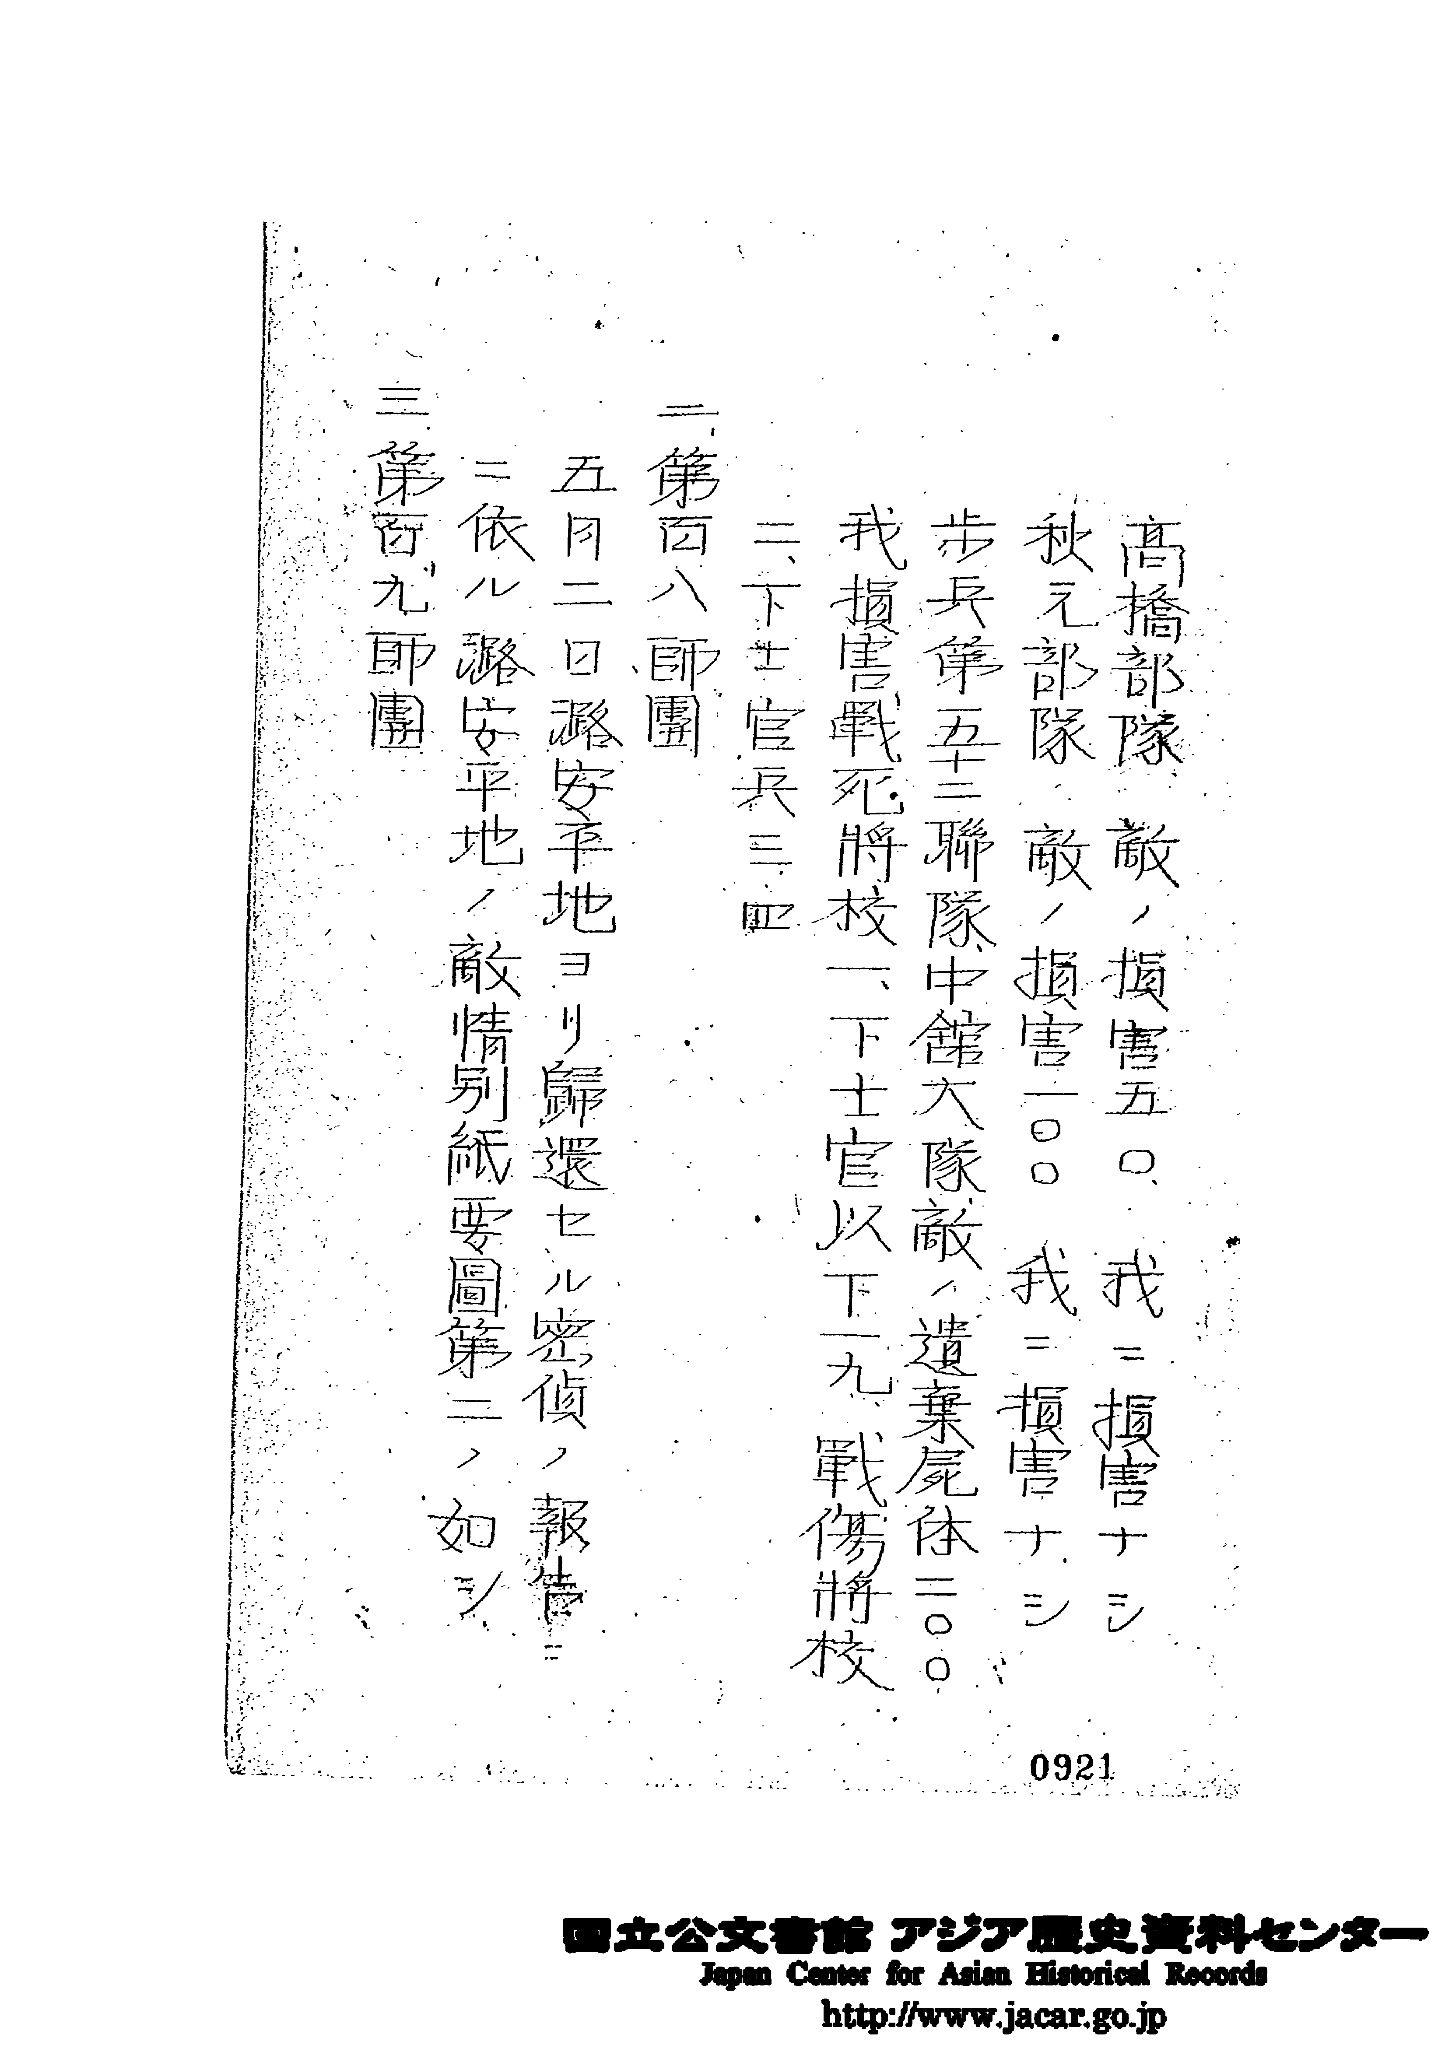 高橋部隊　敵ノ損害五〇、我ニ損害ナシ
秋元部隊　敵ノ損害一〇〇　我ニ損害ナシ
歩兵第五十三聯隊、中舘大隊敵ノ遺棄屍体二〇〇
我損害戰死將校一、下士官以下一九、戰傷將校
二、下士官兵三四
二、第百八師團
五月二日潞安平地ヨリ歸還セル密偵ノ報告ニ
ニ依ル潞安平地ノ敵情別紙要圖第二ノ如シ
三、第百九師團
0921
国立公文書館 アジア歴史資料センター
Japan Center for Asian Historical Records
http://www.jacar.go.jp